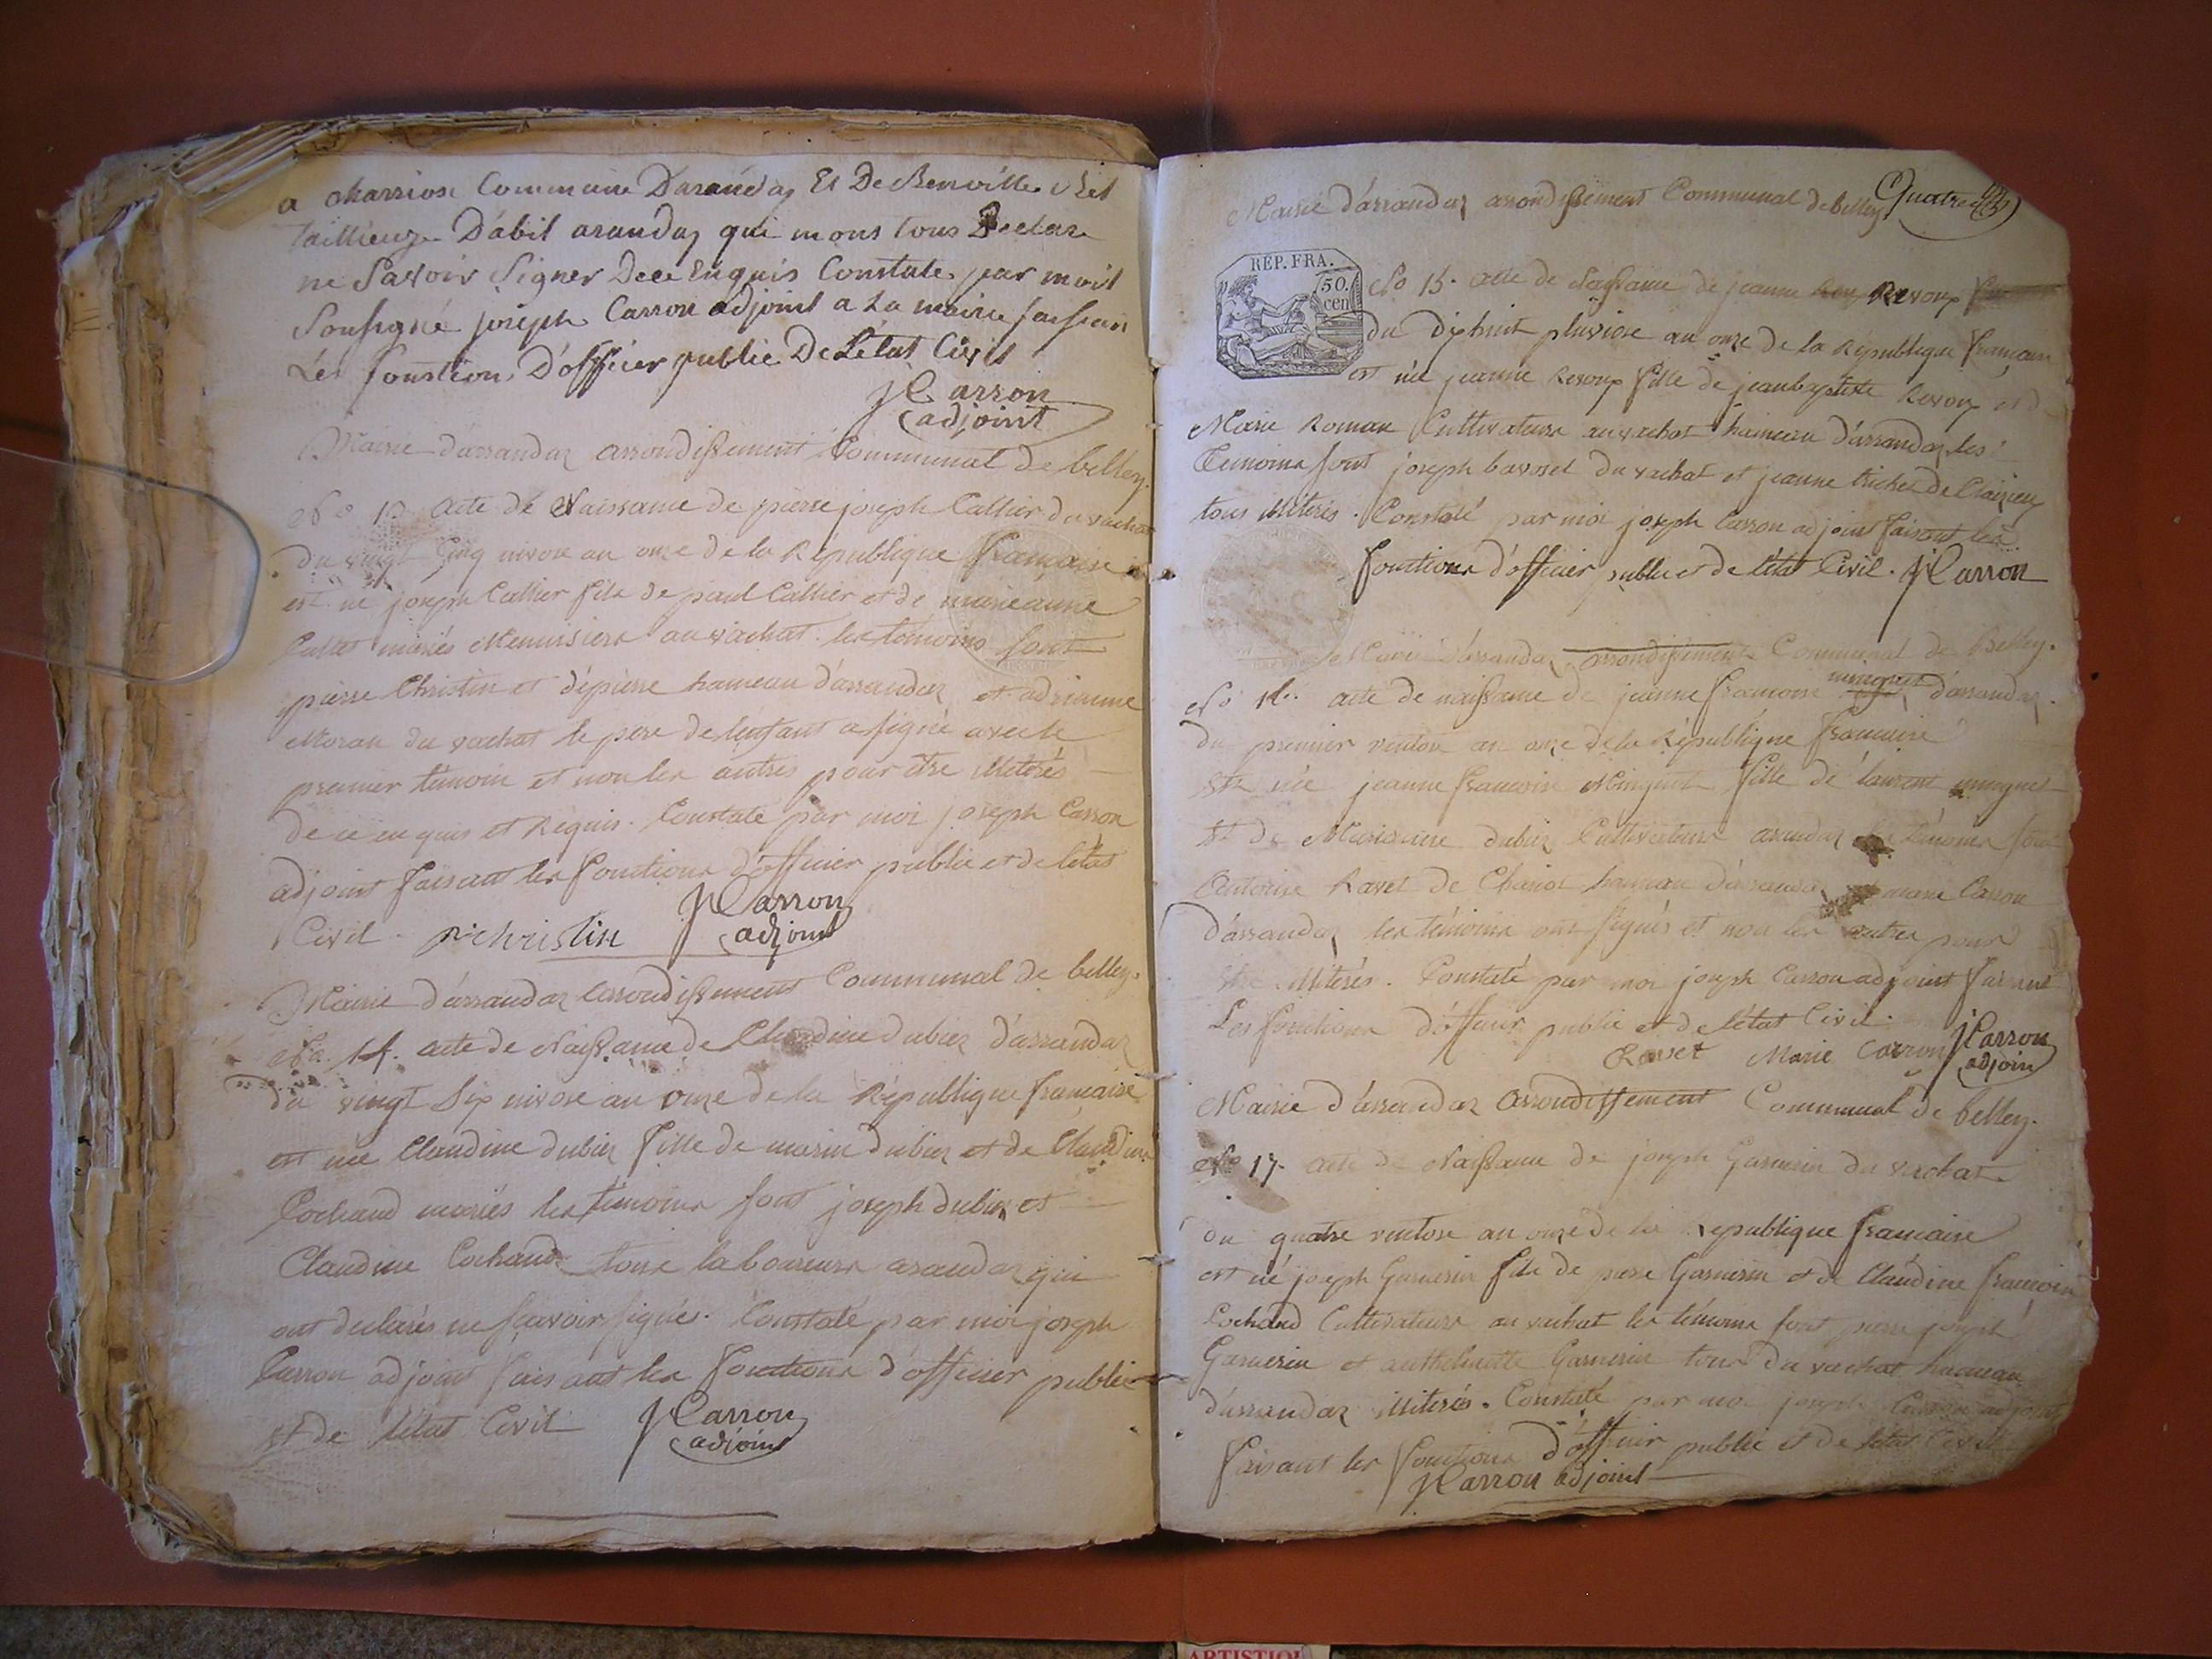 a charriose Commune D'arandaz Et De Benville
taillieuz D'abit arandaz qui m'ont tous Declare
ne Savoir Signer Dece Enquis Constate par moit
Sousigné joseph Carron adjoint a La mairie faisan
Les fonstion D'officier public De L'état Civil
J Carron
adjoint
Mairie d'arrandaz arrondissement Communal de belley.
No 13 acte de Naissance de pierre joseph Callier du vachat
du vingt Cinq nivose an onze de la République française
est né joseph Callier fils de paul Callier et de marieanne
mariés Menuisiers au vachat. les témoins sont
pierre Christin et dépierre hameau d'arrandaz et adrianne
Moran du vachat le pere de lenfant a signé avec le
premier témoin et non les autres pour être illiterés
de ce enquis et Requis. Constaté par moi joseph Carron
adjoint faisant les fonctions d'officier public et de létat
Civil. p christin J Carron
adjoint
Mairie d'arrandaz arrondissement Communal de belley.
No. 14. acte de Naissance de Claudine dubiez d'arrandaz
du vingt Six nivose an onze de la République francaise
est née Claudine dubiez fille de marin dubiez et de Claudine
Cochand mariés les témoins sont joseph dubiez et
Claudine Cochand tous laboureurs arandaz qui
ont declarés ne savoir signés. Constaté par moi joseph
Carron adjoint faisant les fonctions d'officier public
et de létat Civil J Carron
adjoint
Mairie d'arrandaz arrondissement Communal de belley Quatre
REP. FRA.
50.
cen
No 15. acte de Naissance de jeanne Revoux
du dixhuit pluviose an onze de la République francaise
est née jeanne Revoux fille de jeanbaptiste Revoux et de
Marie Roman Cultivateurs au vachat hameau d'arrandaz les
temoins sont joseph bavosel du vachat et jeanne trichet de
tous illiterés. Constaté par moi joseph Carron adjoint faisant les
fonctions d'officier public et de létat Civil. J Carron
Mairie d'arrandaz arrondissement Communal de Belley.
minguet
No 16. acte de naissance de jeanne francoise d'arrandaz.
du premier ventose an onze de la République francaise
est née jeanne francoise Minguet fille de laurent minguet
et de Marieanne dubiez Cultivateurs arandaz les témoins sont
Antoine Ravet de Chariot hameau d'arrandaz marie Carron
d'arrandaz les témoins ont signés et non les autres pour
être illiterés. Constaté par moi joseph Carron adjoint faisant
Les fonctions d'officier public et de létat Civil.
Ravet Marie Carron J Carron
adjoint
Mairie d'arrandaz arrondissement Communal de belley.
No 17. acte de Naissance de joseph Garnerin du vachat
du quatre ventose an onze de la Republique francaise
est né joseph Garnerin fils de pierre Garnerin et de Claudine francoise
Cochand Cultivateurs au vachat les témoins sont pierre joseph
Garnerin et anthelmette Garnerin tous du vachat hameau
d'arrandaz illiterés. Constaté par moi joseph Carron adjoint
faisant les fonctions d'officier public et de létat Civil
J Carron adjoint